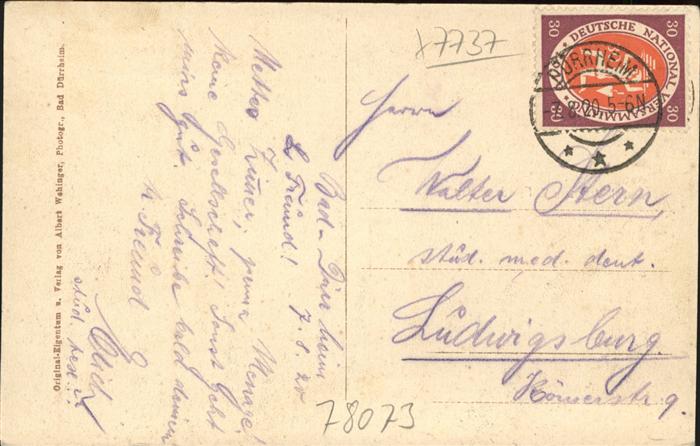 Original-Eigentum u. Verlag von Albert Wehinger, Photogr., Bad Dürrheim.
Bad-Dürrheim
7.8.20
L. Freund!
Wetter Zimmer, prima Menage!
Keine Gesellschaft! Sonst geht
mirs gut. Schreibe bald deinem
Freund
x7737
30 30
DEUTSCHE NATIONALVERSAMMLUNG
30 30
DÜRRHEIM
5-6N
Herrn
Walter Stern,
stud. med. dent.
Ludwigsburg.
Römerstr. 9.
78073